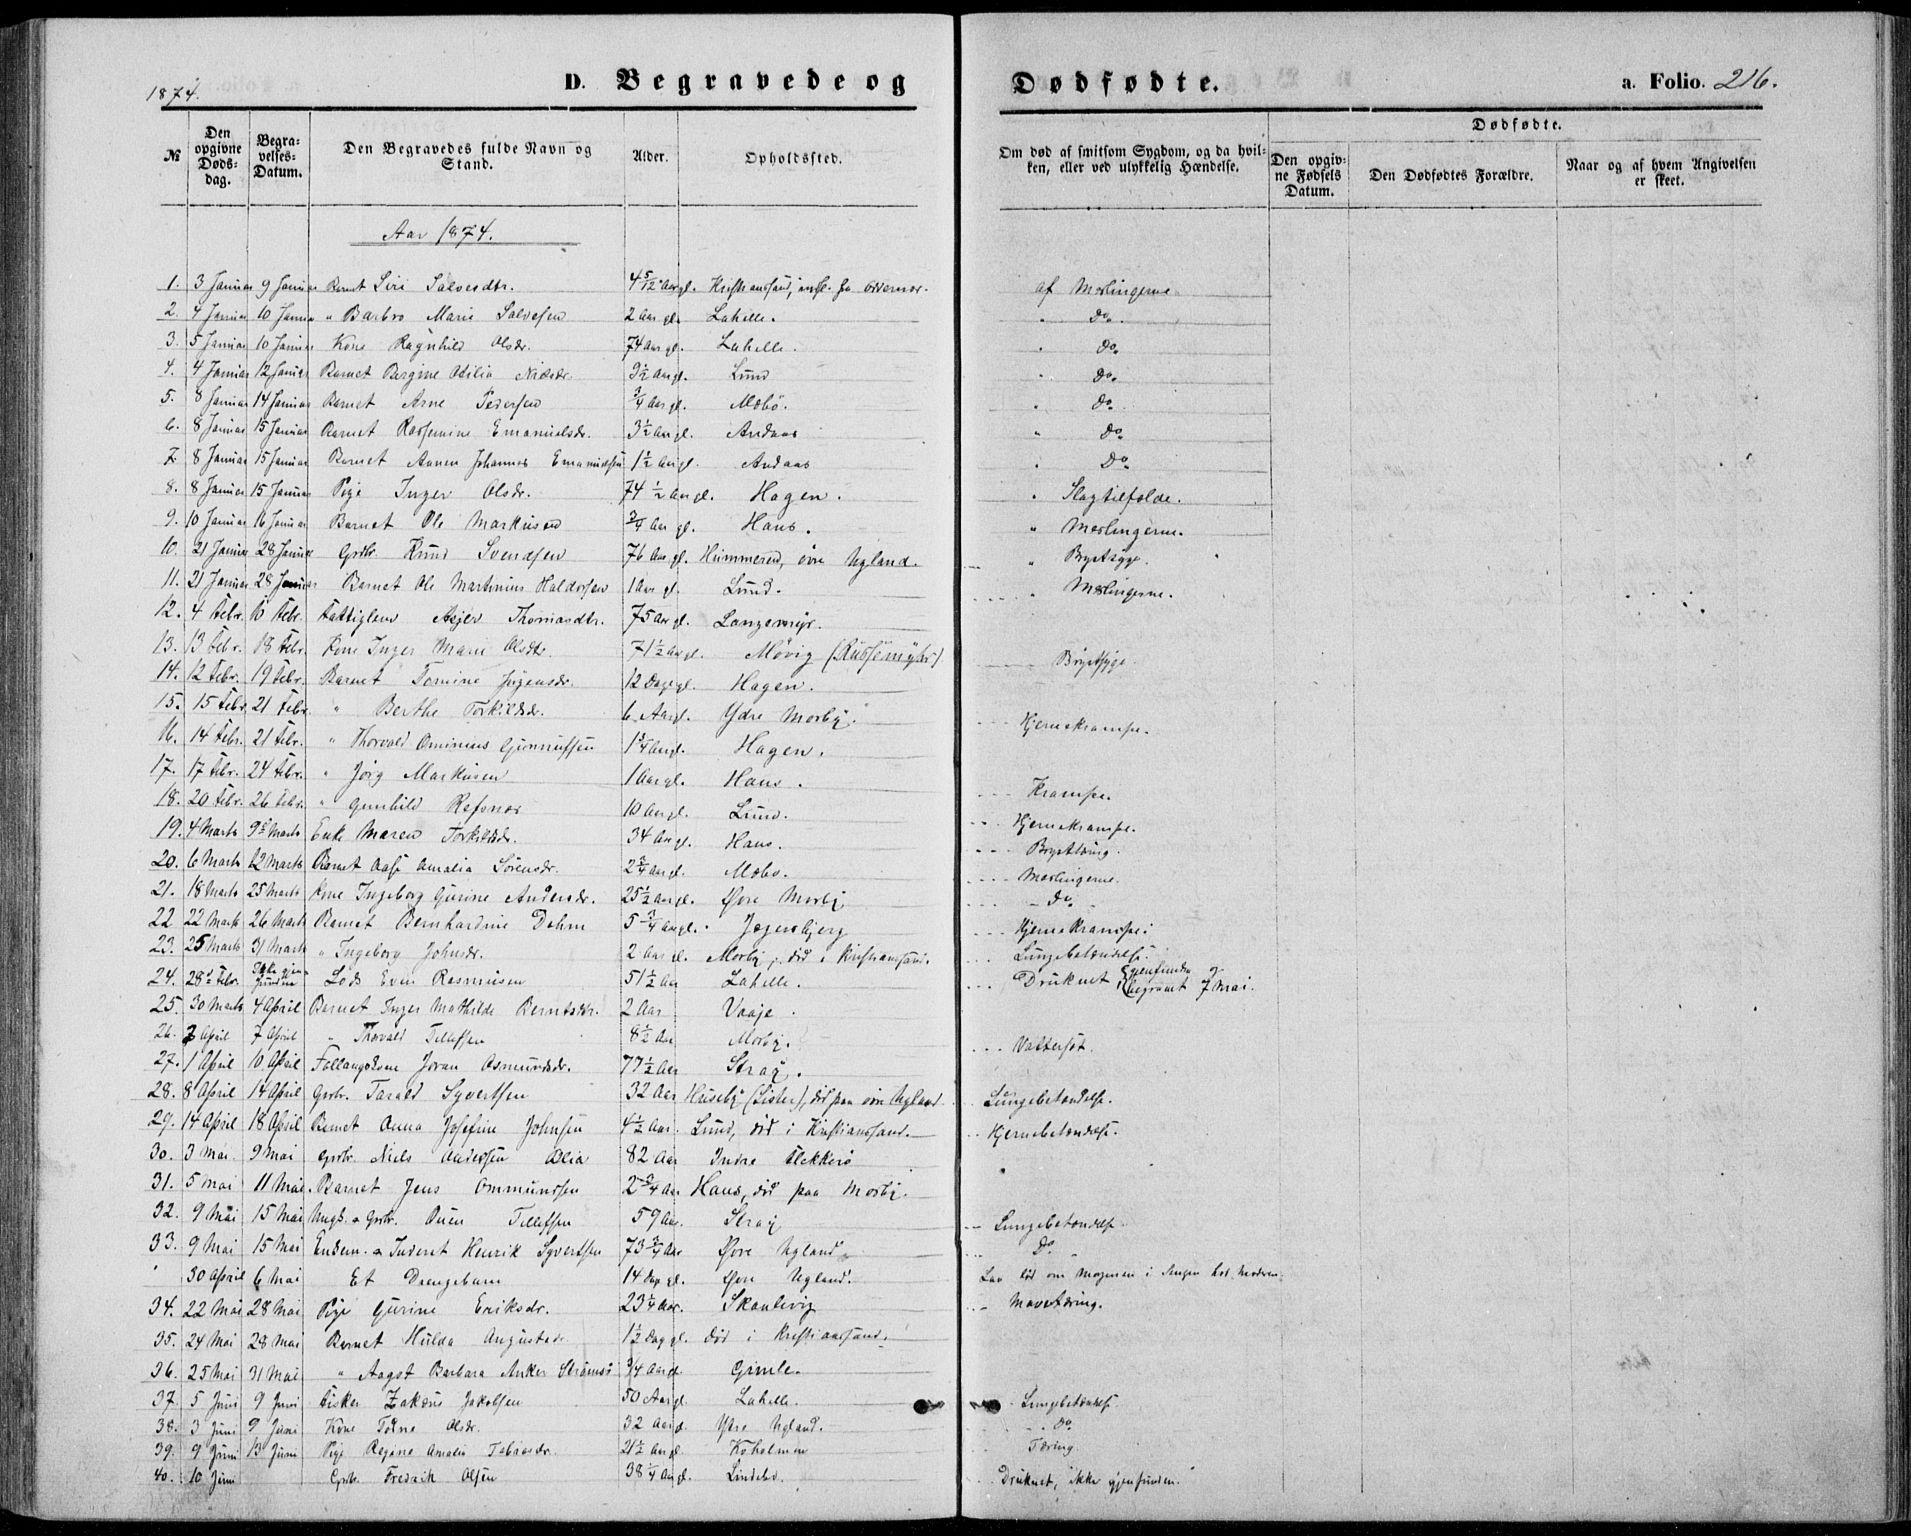 1874.
D. Begravede og Dødfødte.
a. Folio. 216.
№ Den opgivne Dødsdag. Begravelses-Datum. Den Begravedes fulde Navn og Stand. Alder. Opholdssted. Om død af smitsom Sygdom, og da hvilken, eller ved ulykkelig Hændelse. Dødfødte. Den opgivne Fødsels Datum. Den Dødfødtes Forældre. Naar og af hvem Angivelsen er skeet.
Aar 1874.
1. 3 Januar 9 Januar Barnet Siri Salvesdtr. 4 5/12 Aar gl. Kristianssand, fra Oddernes. af Meslingerne
2. 4 Januar 10 Januar " Barbro Marie Salvesen 2 Aar gl. Lahelle. " Do.
3. 5 Januar 10 Januar Kone Ragnhild Olsdr. 74 Aar gl. Lahelle. " Do.
4. 4 Januar 12 Januar Barnet Bergine Odilia Nielsdr. 9½ Aar gl. Lund " Do.
5. 8 Januar 14 Januar Barnet Arne Pedersen ¾ Aar gl. Mæbø. " Do.
6. 8 Januar 15 Januar Barnet Rassemine Emanuelsdr. 3½ Aar gl. Andaas " Do.
7. 8 Januar 15 Januar Barnet Aanen Johannes Emanuelsen 1½ Aar gl. Andaas " Do.
8. 8 Januar 15 Januar Pige Inger Olsdr. 74 ½ Aar gl. Hagen. " Slagtilfælde.
9. 10 Januar 16 Januar Barnet Ole Markusen ¾ Aar gl. Haus. " Meslingerne.
10. 21 Januar 28 Januar Grdbr. Knud Svendsen 76 Aar gl. Hummeren, øvre Ugland. " Brystsyge.
11. 21 Januar 28 Januar Barnet Ole Martinius Haldorsen 1 Aar gl. Lund. " Meslingerne.
12. 4 Febr. 10 Febr. Fattiglem Asjer Thomasdtr. 75 Aar gl. Langemyr.
13. 13 Febr. 18 Febr. Kone Inger Marie Olsdtr. 71½ Aar gl. Møvig (Russemyhr) Brystsyge.
14. 12 Febr. 19 Febr. Barnet Tomine Jørgensdr. 12 Dage gl. Hagen.
15. 15 Febr. 21 Febr. " Berthe Torkildsdr. 6 Aar gl. Ydre Mosby. Hjernekrampe.
16. 14 Febr. 21 Febr. " Thorvald Ominius Gunnufsen 1¾ Aar gl. Hagen.
17. 17 Febr. 24 Febr. " Jørg Markusen 1 Aar gl. Haus.
18. 20 Febr. 26 Febr. " Gunhild Refsnes 10 Aar gl. Lund. Krampe.
19. 4 Marts 9 Marts Enke Maren Torkildsdr. 34 Aar gl. Haus. Hjernekrampe.
20. 6 Marts 12 Marts Barnet Aase Amalia Sørensdr. 2¾ Aar gl. Mæbø. Brysttæring.
21. 18 Marts 25 Marts Kone Ingeborg Gurine Andersdr. 25½ Aar gl. Øvre Mosby Meslingerne.
22 22 Marts 26 Marts Barnet Bernhardine Dehm 5 ¾ Aar gl. Jegersbjerg Do.
23. 25 Marts 31 Marts " Ingeborg Johnsdr. 2 Aar gl. Mosby, død i Kristianssand. Hjernekrampe.
24. 28 Febr. Ikke gjenfunden Lods Even Rasmusen 51½ Aar Lahelle. Lungebetændelse.
Druknet (gjenfunden og begravet 7 Mai.
25. 30 Marts 4 April Barnet Inger Mathilde Berntsdtr. 2 Aar Vaaje.
26. 2 April 7 April " Thorvald Tellefsen 8½ Aar Mosby.
27. 1 April 10 April Føllaugskone Joran Osmundsdr. 77½ Aar Straj. Vattersot.
28. 8 April 14 April Grdbr. Tarald Syvertsen 32 Aar Huseby (Lister), død paa øvre Ugland. Lungebetændelse.
29. 14 April 18 April Barnet Anna Josefine Johnsen 4½ Aar. Lund, død i Kristianssand. Hjernebetændelse.
30. 3 Mai 9 Mai Grdbr. Niels Andersen 82 Aar Indre Flekkerø
31. 5 Mai 11 Mai Barnet Jens Ommundsen 2¾ Aar Haus, død paa Mosby.
32. 9 Mai 15 Mai Ungk. & Grdbr. Ouen Tellefsen 59 Aar. Straj Lungebetændelse
33. 9 Mai 15 Mai Enkem. & Inderst Henrik Syvertsen 73¾ Aar Øvre Ugland Do.
30 April 6 Mai Et Drengebarn 14 Dage gl. Øvre Ugland. Laa død om Morgenen i Sengen hos Moderen.
34. 22 Mai 28 Mai Pige Gurine Eriksdr. 23¼ Aar. Skoutevig Mavetæring.
35. 24 Mai 28 Mai Barnet Hulda Augusta 1½ Dag gl. død i Kristianssand.
36. 25 Mai 31 Mai " Aagot Barbara Anker Strømsø ¾ Aar gl. Gimle.
37. 5 Juni 9 Juni Fisker Zakæus Jakobsen 50 Aar gl. Lahelle. Lungebetændelse.
38. 3 Juni 9 Juni Kone Todne Olsdr. 32 Aar gl. Ydre Ugland. Do
39. 9 Juni 13 Juni Pige Regine Amalia Tobiasdr. 21½ Aar gl. Koholmen Tæring
40. 10 Juni Grdbr. Fredrik Olsen 38¼ Aar gl. Lindebo. Druknet, ikke gjenfunden.